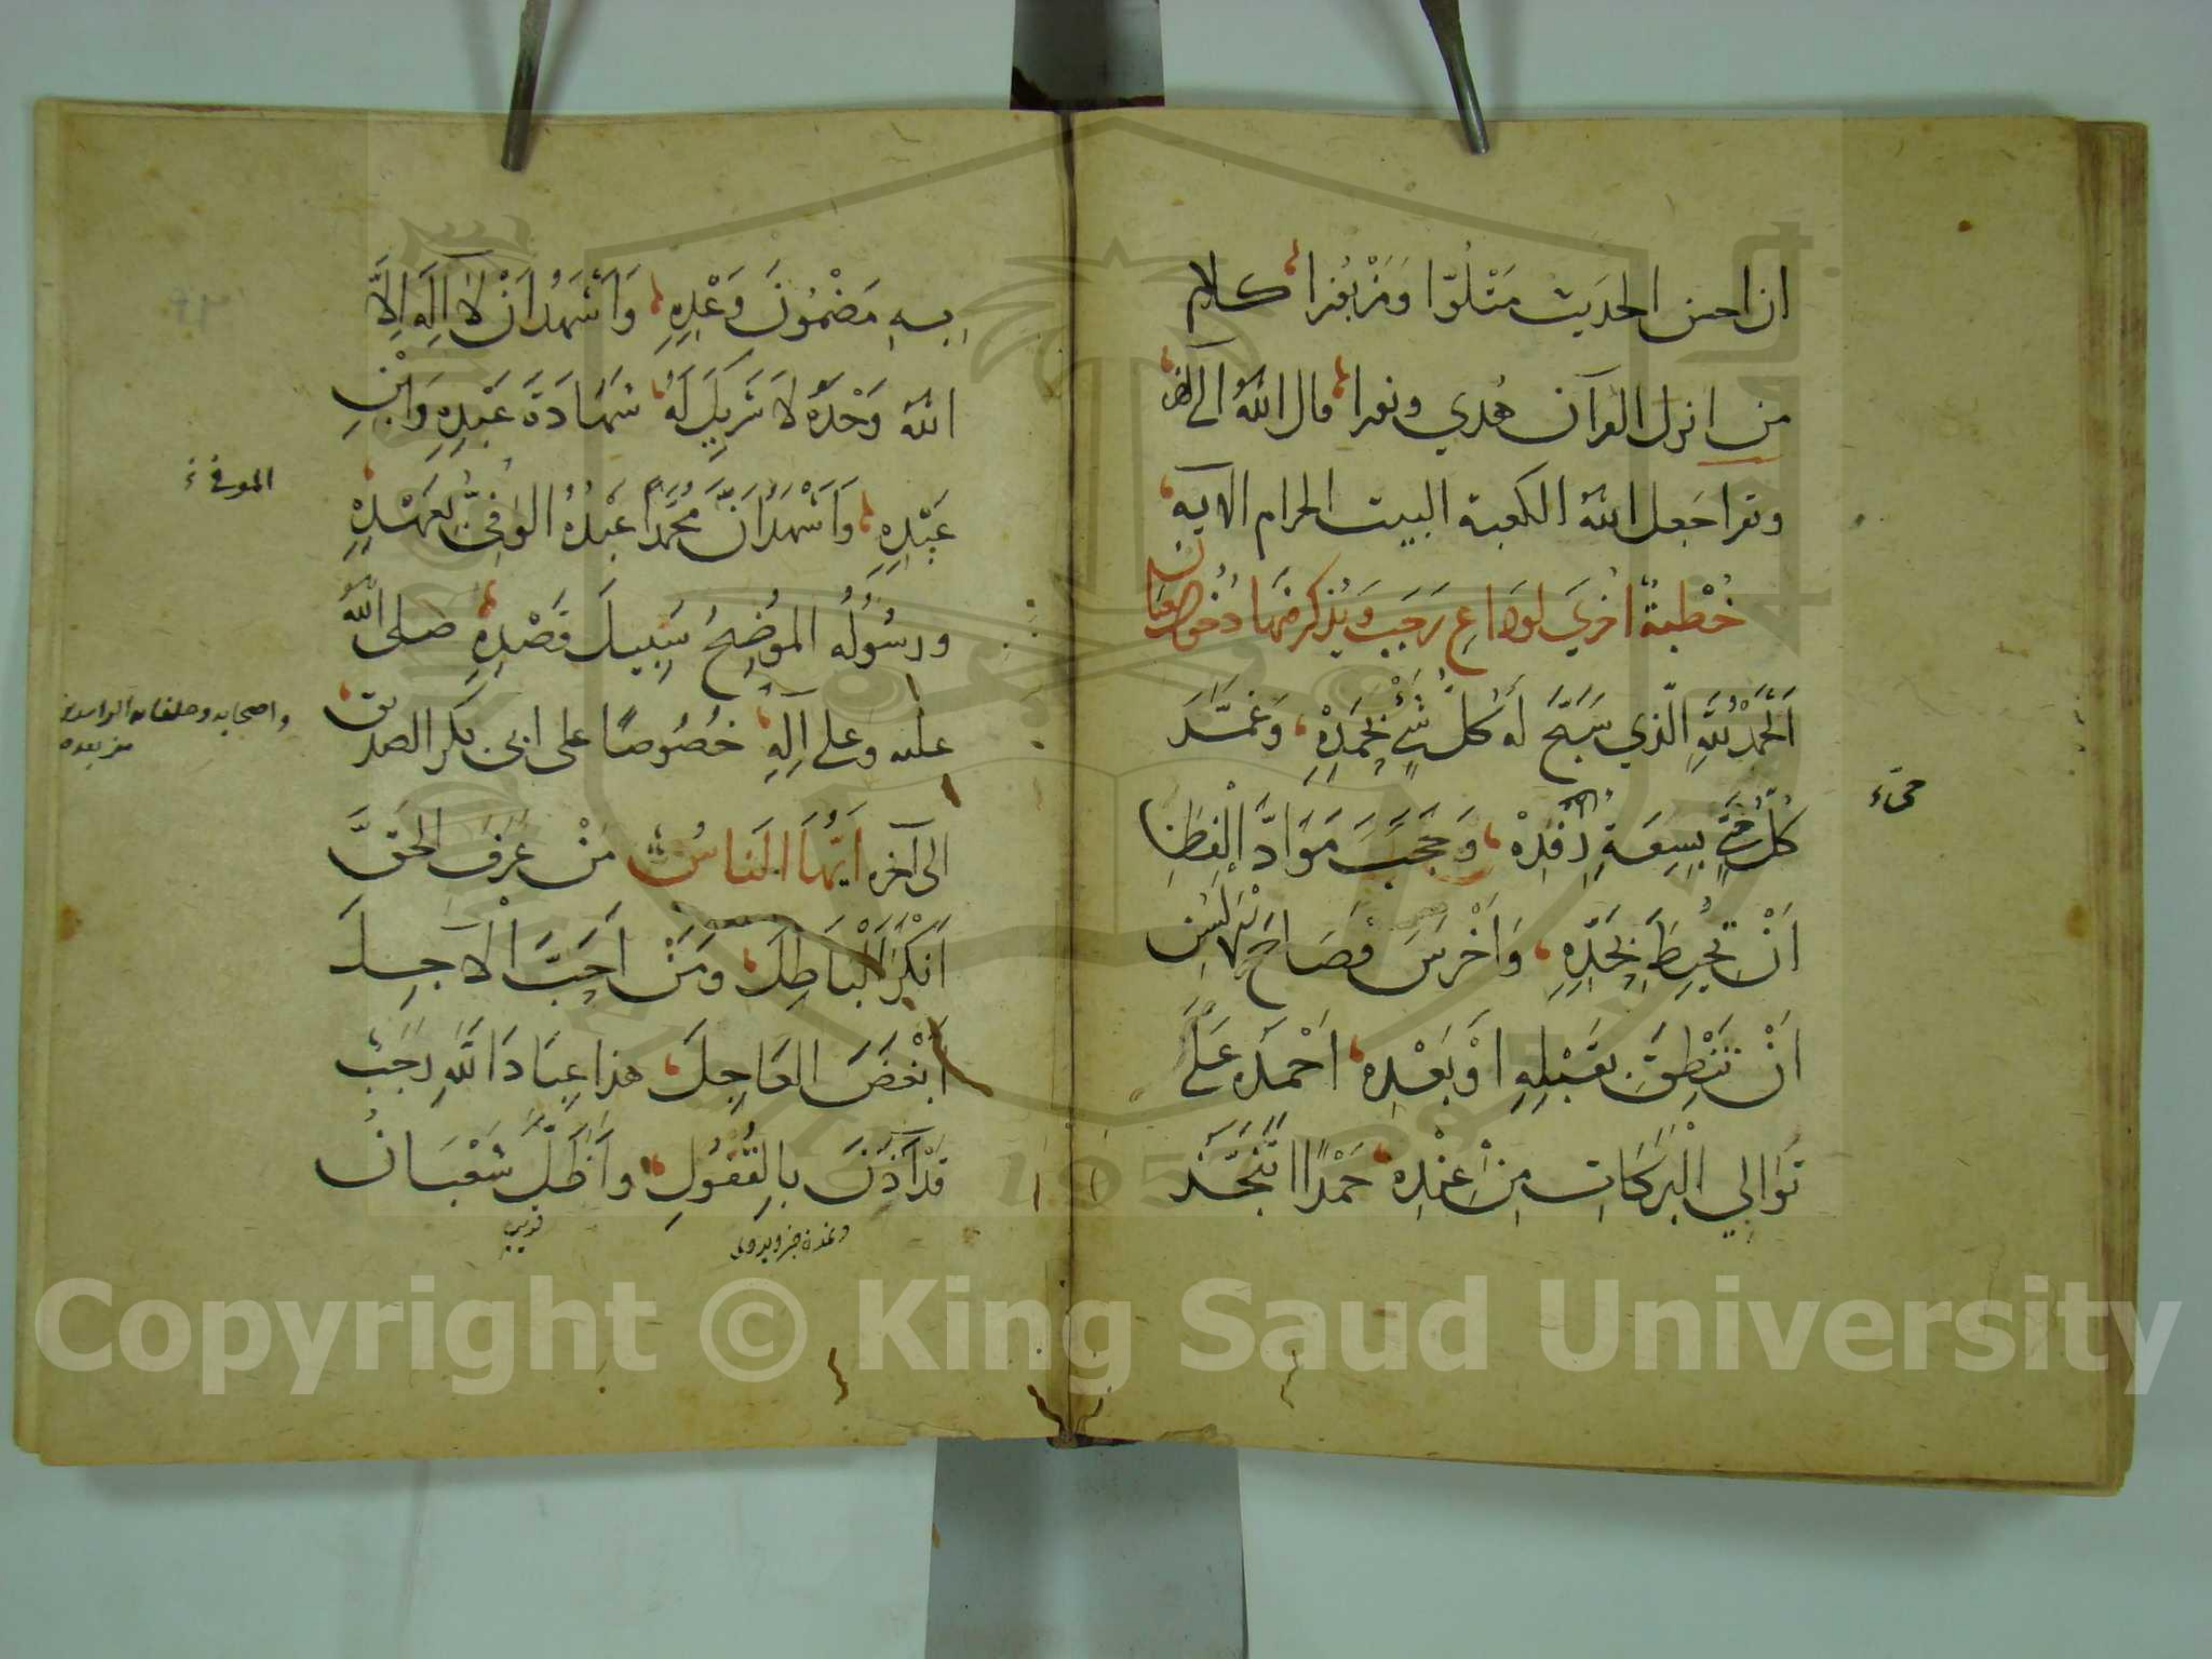 ان احسن الحديث متلوّا ومزبورا كلام
من انزل القرآن هدي ونورا قال الله
وتقرا جعل الله الكعبة البيت الحرام الاية
خُطْبَةٌ اخري لوداع رَجَبَ وَيُذكر فيها دخول شعبان
اَلْحَمْدُ لِلَّهِ الّذي سَبَّحَ لَهُ كُلُّ شَيْءٍ بِحَمْدِهْ، وَغَمَّدَ
كُلَّ حَيٍّ بِسِعَةِ رِفْدِهْ، وَحَجَبَ مَوَادَّ الْفِطَنِ
اَنْ تُحِيطَ بِحَدِّهِ، وَاَخْرَسَ فِصَاحَ الْاَلْسُنِ
اَنْ تَنْطِقَ بِقَبْلِهِ اَوْ بَعْدِهِ، اَحْمَدُهُ عَلَى
تَوَالِي الْبَرَكَاتِ مِنْ عِنْدِهِ، حَمْدًا اَتَنَجَّزُ
حيّ
بِهِ مَضْمُونَ وَعْدِهِ، وَاَشْهَدُ اَنْ لَا اِلَهَ اِلَّا
اللهُ وَحْدَهُ لَا شَرِيكَ لَهُ، شَهَادَةَ عَبْدِهِ وَابْنِ
عَبْدِهِ، وَاَشْهَدُ اَنَّ مُحَمَّدًا عَبْدُهُ الوَفِيُّ بِعَهْدِهِ
ورسُولُه الموُضِحُ سَبِيلَ قَصْدِهِ، صلى الله
عليه وعلى اِلِهِ، خُصُوصًا على ابي بكر الصديق
الى آخره اَيُّهَا النَّاسُ مَنْ عَرَفَ الحَقَّ
اَنْكَرَ الْبَاطِلَ، وَمَنْ اَحَبَّ الْآجِلَ
اَبْغَضَ العَاجِلَ، هذا عِبَادَ اللَّهِ رَجَبُ
قَدْ آذَنَ بِالقُفُولِ، واَظَلَّ شَعْبَانُ
الموفي
واصحابه وخلفائه الراشدين
من بعده
قريب